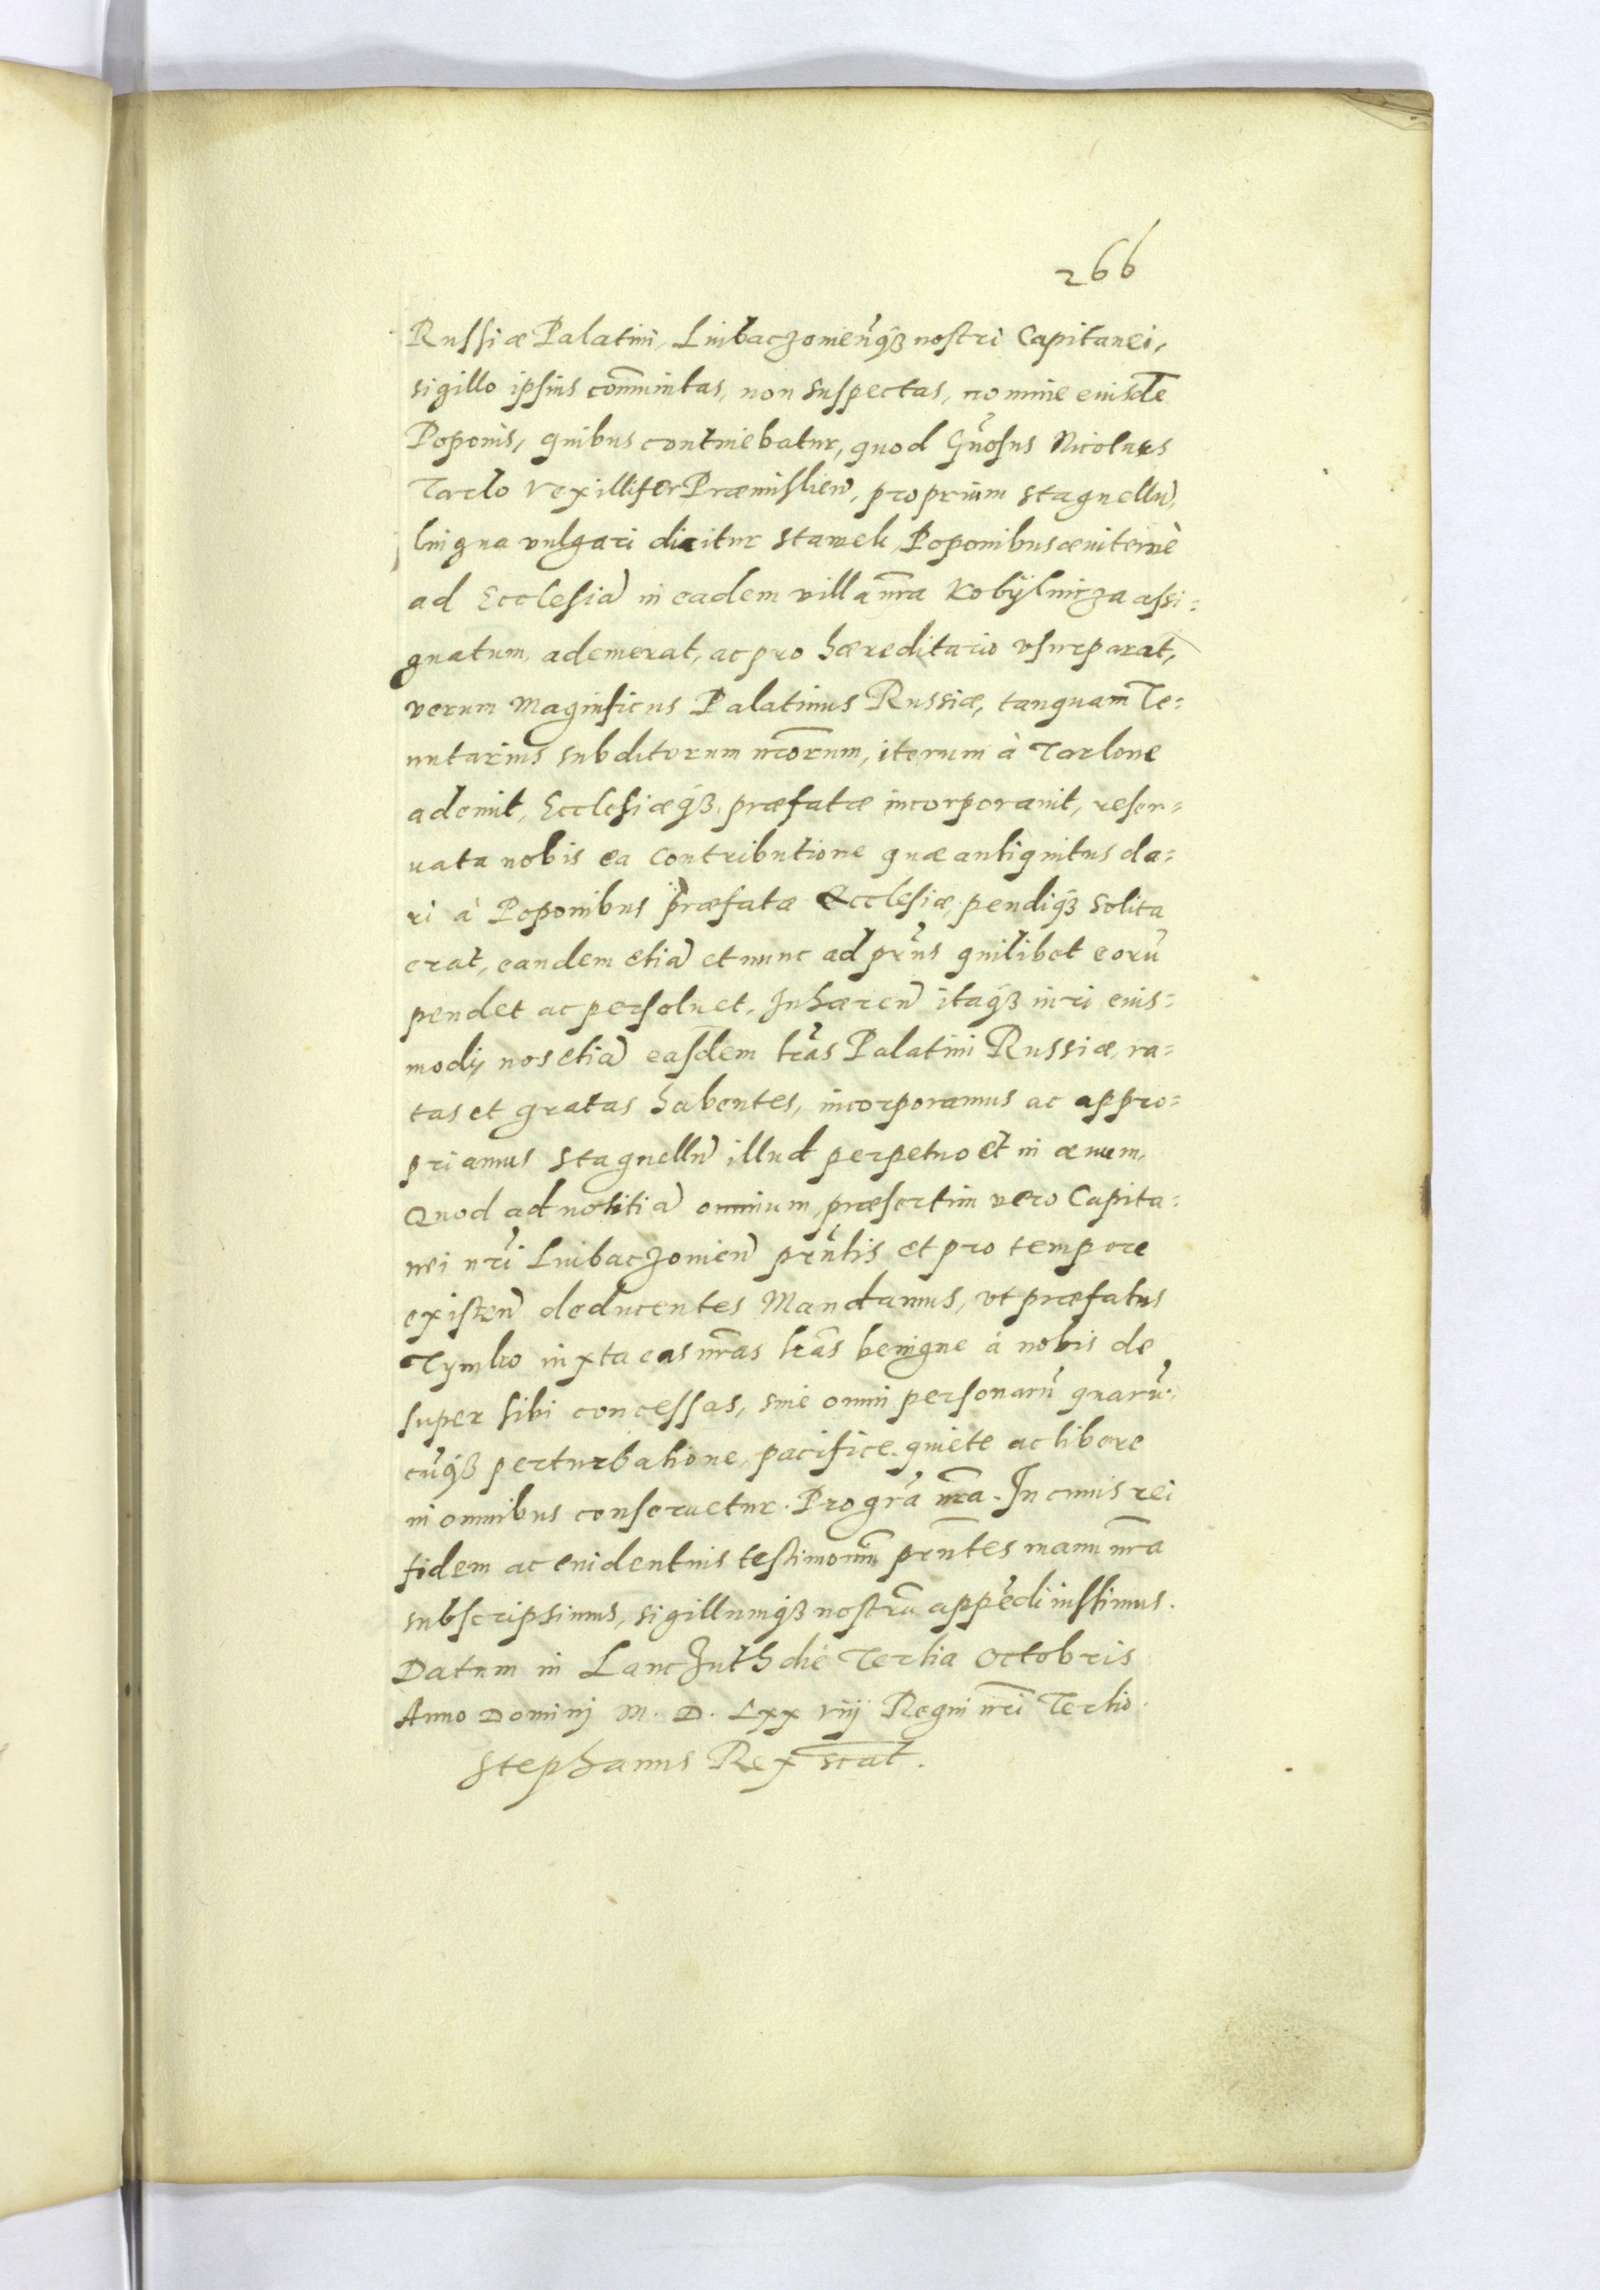 266
Russiæ Palatini, Liubaczovien̄q3 nostri Capitanei,
sigillo ipsius com̄unitas, non suspectas, nomine eiusdē
Poponis, quibus continebatur, quod Gn̄osus Nicolaus
Tarlo Vexillifer Præmislien̄, proprium stagnellū,
lingua vulgari dicitur stawek, Poponibus æviternè
ad Ecclesiā in eadem villa nr̄a Kobÿlnicza assi=
gnatum, ademerat, ac pro hæreditario vsurparat,
verum Magnificus Palatinus Russiæ, tanquam Te=
nutarius subditorum nr̄orum, iterum à Tarlone
ademit, Ecclesiæq3 præfatæ incorporavit, reser=
uata nobis ea contributione quæ antiquitus da=
ri à Poponibus præfatæ Ecclesiæ, pendiq3 solita
erat, eandem etiā et nunc ad prn̄s quilibet eorū
pendet ac persoluet. Inhæren̄ itaq3 iuri eius=
modi, nos etiā easdem lr̄as Palatini Russiæ, ra=
tas et gratas habentes, incorporamus ac appro=
priamus stagnellū illud perpetuo et in æuum.
Quod ad notitiā omnium, præsertim vero Capita=
nei nr̄i Liubaczovien̄ prn̄tis et pro tempore
existen̄ deducentes Mandamus, vt præfatus
Tymko iuxta eas nr̄as lr̄as benigne à nobis de
super sibi concessas, sine omni personarū quarū=
cūq3 perturbatione, pacifice, quiete ac libere
in omnibus conseruetur. Pro gr̄a nr̄a. In cuius rei
fidem ac euidentius testimoniū prn̄tes manu nr̄a
subscripsimus, sigillumq3 nostrū appēdi iussimus.
Datum in Lanczuth die Tertia Octobris
Anno Domini M. D. Lxx viij Regni nr̄i Tertio.
Stephanus Rex scat̄.